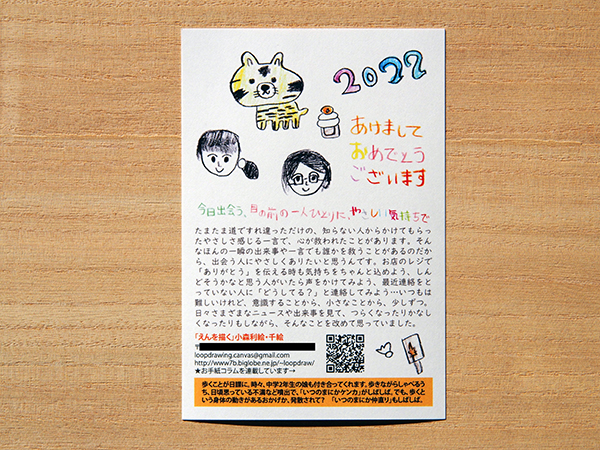 2022
あけまして
おめでとう
ございます
今日出会う、目の前の一人ひとりに、やさしい気持ちで
たまたま道ですれ違っただけの、知らない人からかけてもら
ったやさしさ感じる一言で、心が救われたことがあります。そん
なほんの一瞬の出来事や一言でも誰かを救うことがあるのだか
ら、出会う人にやさしくありたいと思うんです。お店のレジで
「ありがとう」を伝える時も気持ちをちゃんと込めよう、しん
どそうかなと思う人がいたら声をかけてみよう、最近連絡をと
っていない人に「どうしてる？」と連絡してみよう…いつもは
難しいけれど、意識することから、小さなことから、少しずつ。
日々さまざまなニュースや出来事を見て、つらくなったりかなし
くなったりもしながら、そんなことを改めて思っていました。
「えんを描く」小森利絵・千絵
〒
loopdrawing.canvas@gmail.com
http://www7b.biglobe.ne.jp/~loopdraw/
★お手紙コラムを連載しています→
歩くことが日課に。時々、中学2年生の娘も付き合ってくれます。歩きながらしゃべるう
ち、日頃思っている不満など噴出で、「いつのまにかケンカ」がしばしば。でも、歩くと
いう身体の動きがあるおかげか、発散されて？　「いつのまにか仲直り」もしばしば。